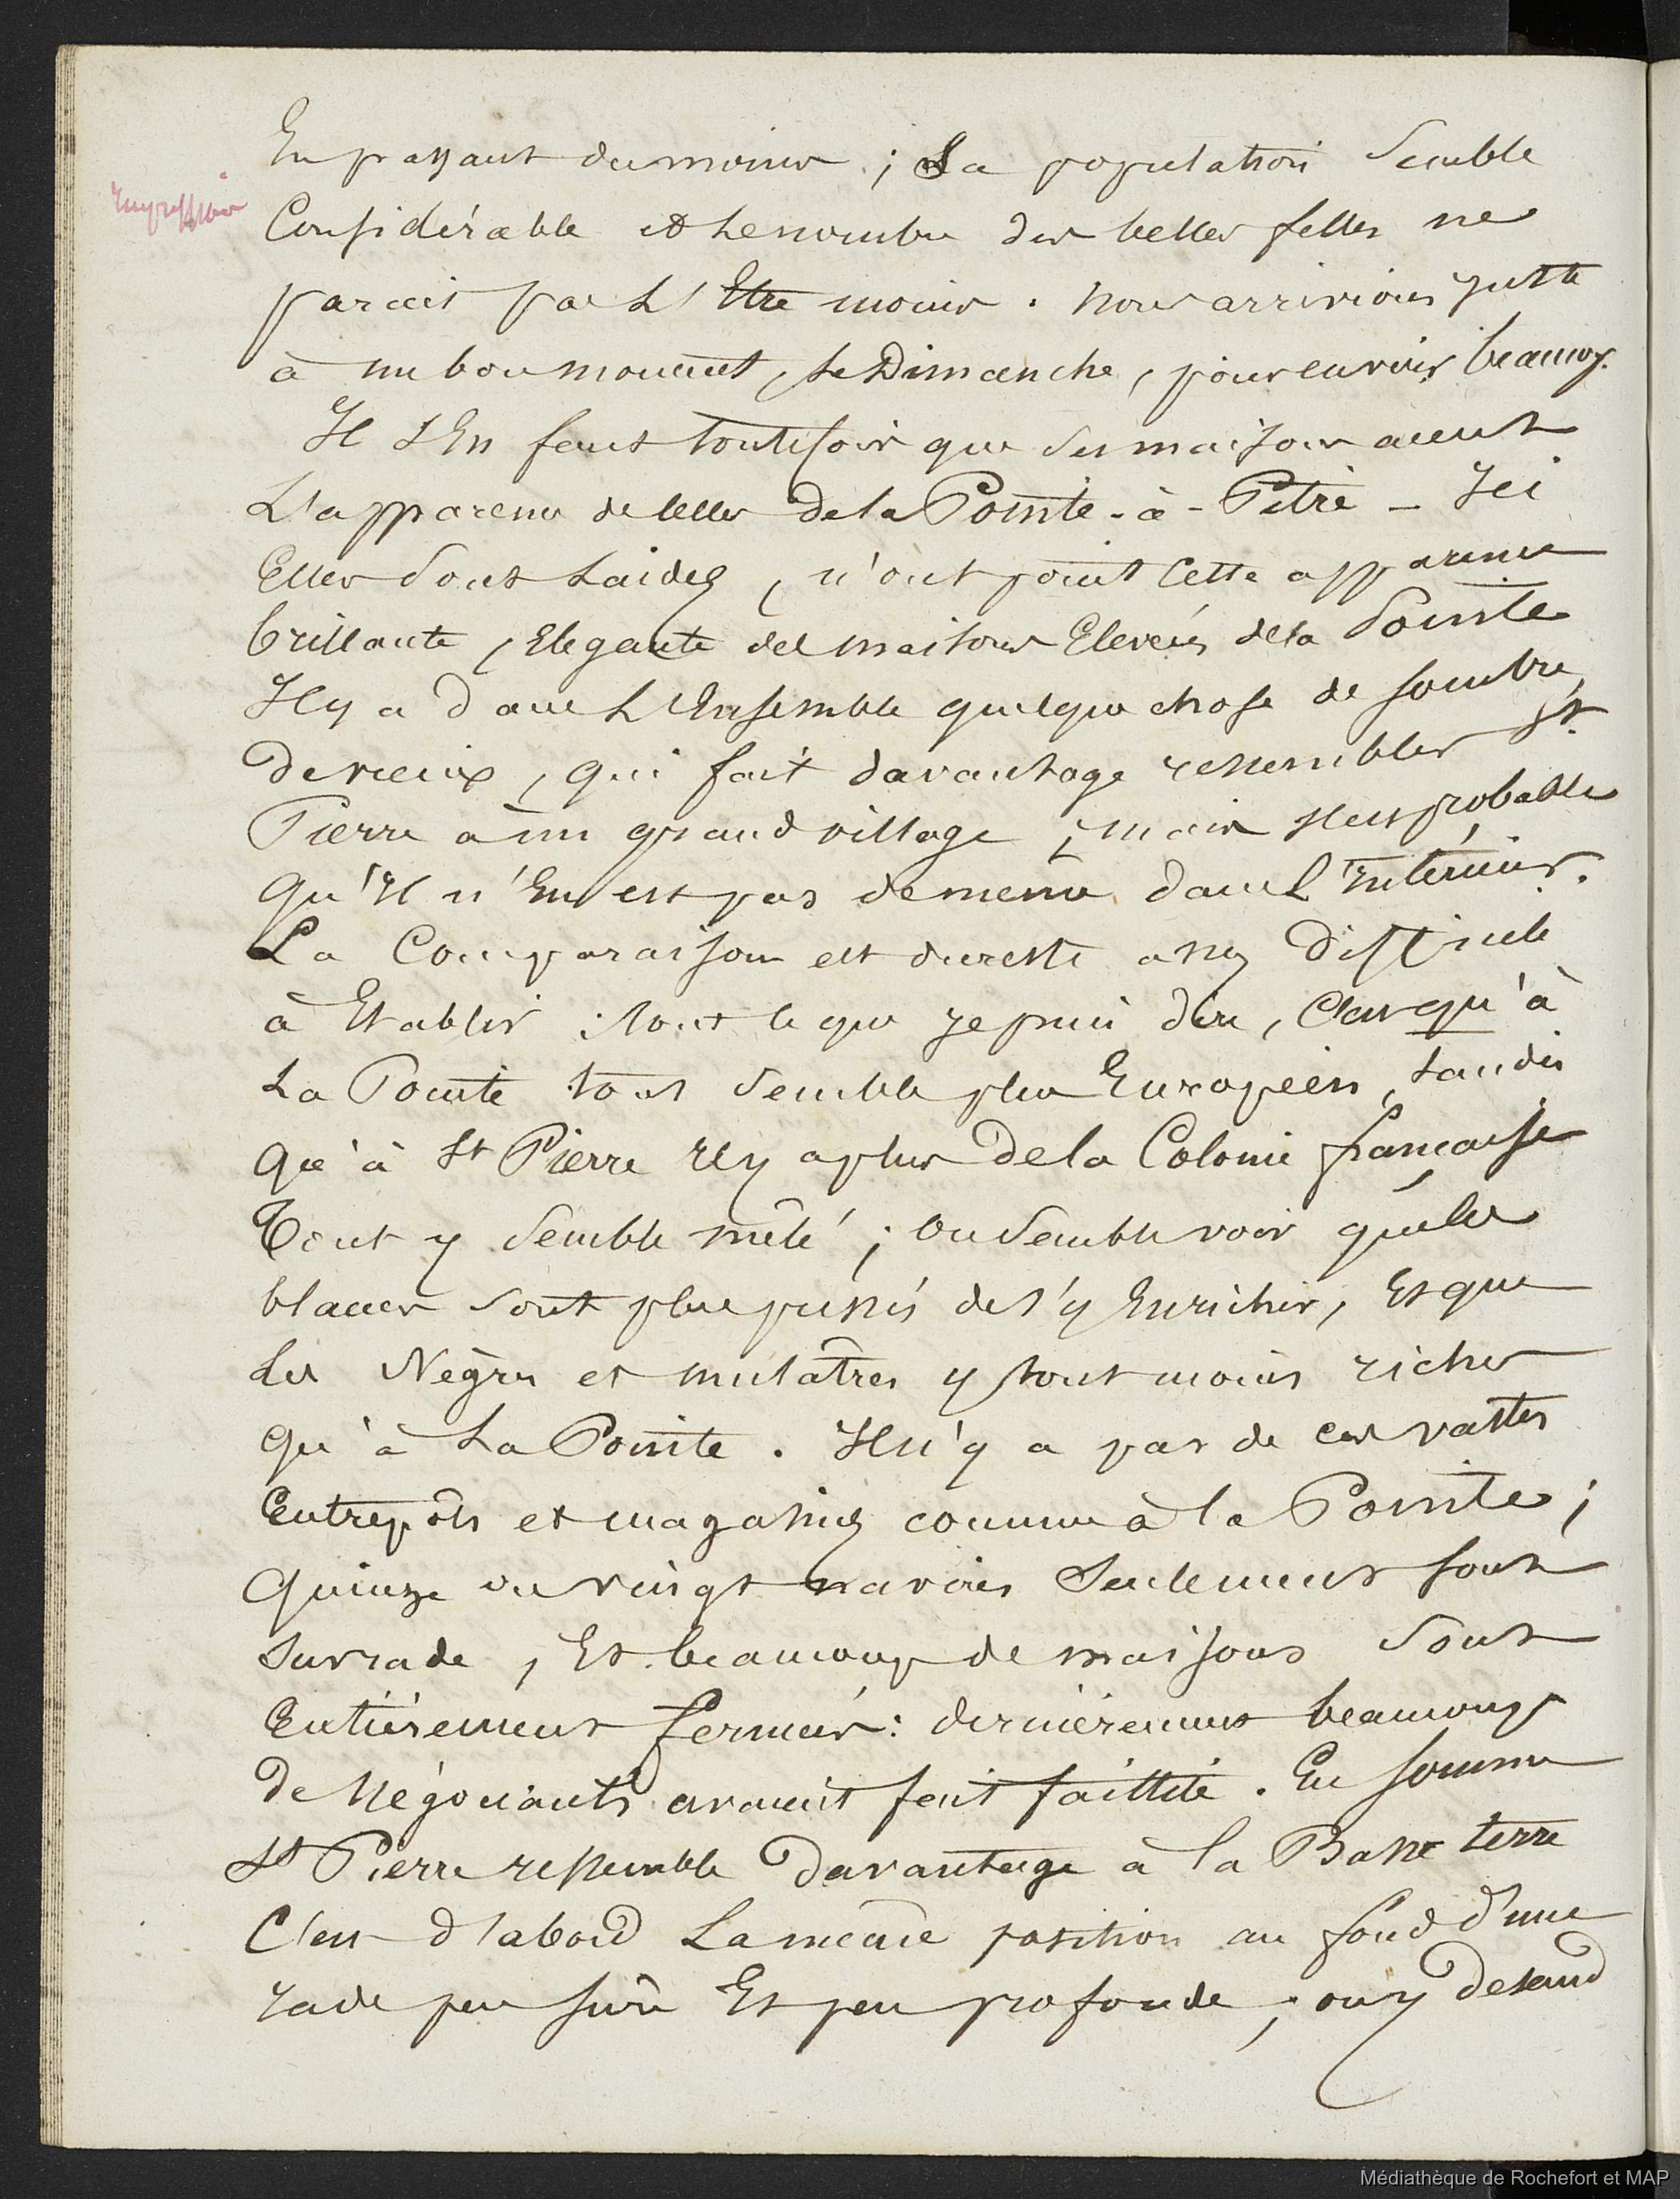 Impression
En passant du moins ; La population Semble
Considérable et Le nombre des belles filles ne
parait pas L'Etre moins . Nous arrivions juste
à un bon moment, Le Dimanche, pour en voir beaucoup.
Il S'En faut toutefois que Les maisons aient
L'apparence de celles de la Pointe-à-Pitre - Ici
Elles Sont Laides, n'ont point Cette apparence
brillante, Elegante des maisons Elevées de la Pointe
Il y a dans L'Ensemble quelque chose de sombre,
de vieux, qui fait davantage ressembler St.
Pierre à un grand village ; mais il est probable
qu'Il n'En est pas de meme dans L'Intérieur.
La Comparaison est du reste assez difficile
à Etablir : tout ce que je puis dire, C'est qu'à
La Pointe tout Semble plus Européen, tandis
qu'à St Pierre Il y a plus de la Colonie française
Tout y Semble mêlé ; on Semble voir que les
blancs Sont plus pressés de s'y Enrichir, Et que
Les Nègres et mulâtres y sont moins riches
qu'à La Pointe . Il n'y a pas de ces vastes
Entrepôts et magasins comme à la Pointe ;
Quinze ou vingt navires Seulement sont
sur rade, Et beaucoup de maisons Sont
Entièrement fermées : dernièrement beaucoup
de Négociants avaient fait faillite . En somme
St Pierre ressemble Davantage à la Basse terre
C'est d'abord La même position au fond d'une
rade peu sûre Et peu profonde ; on y descend
Médiathèque de Rochefort et MAP